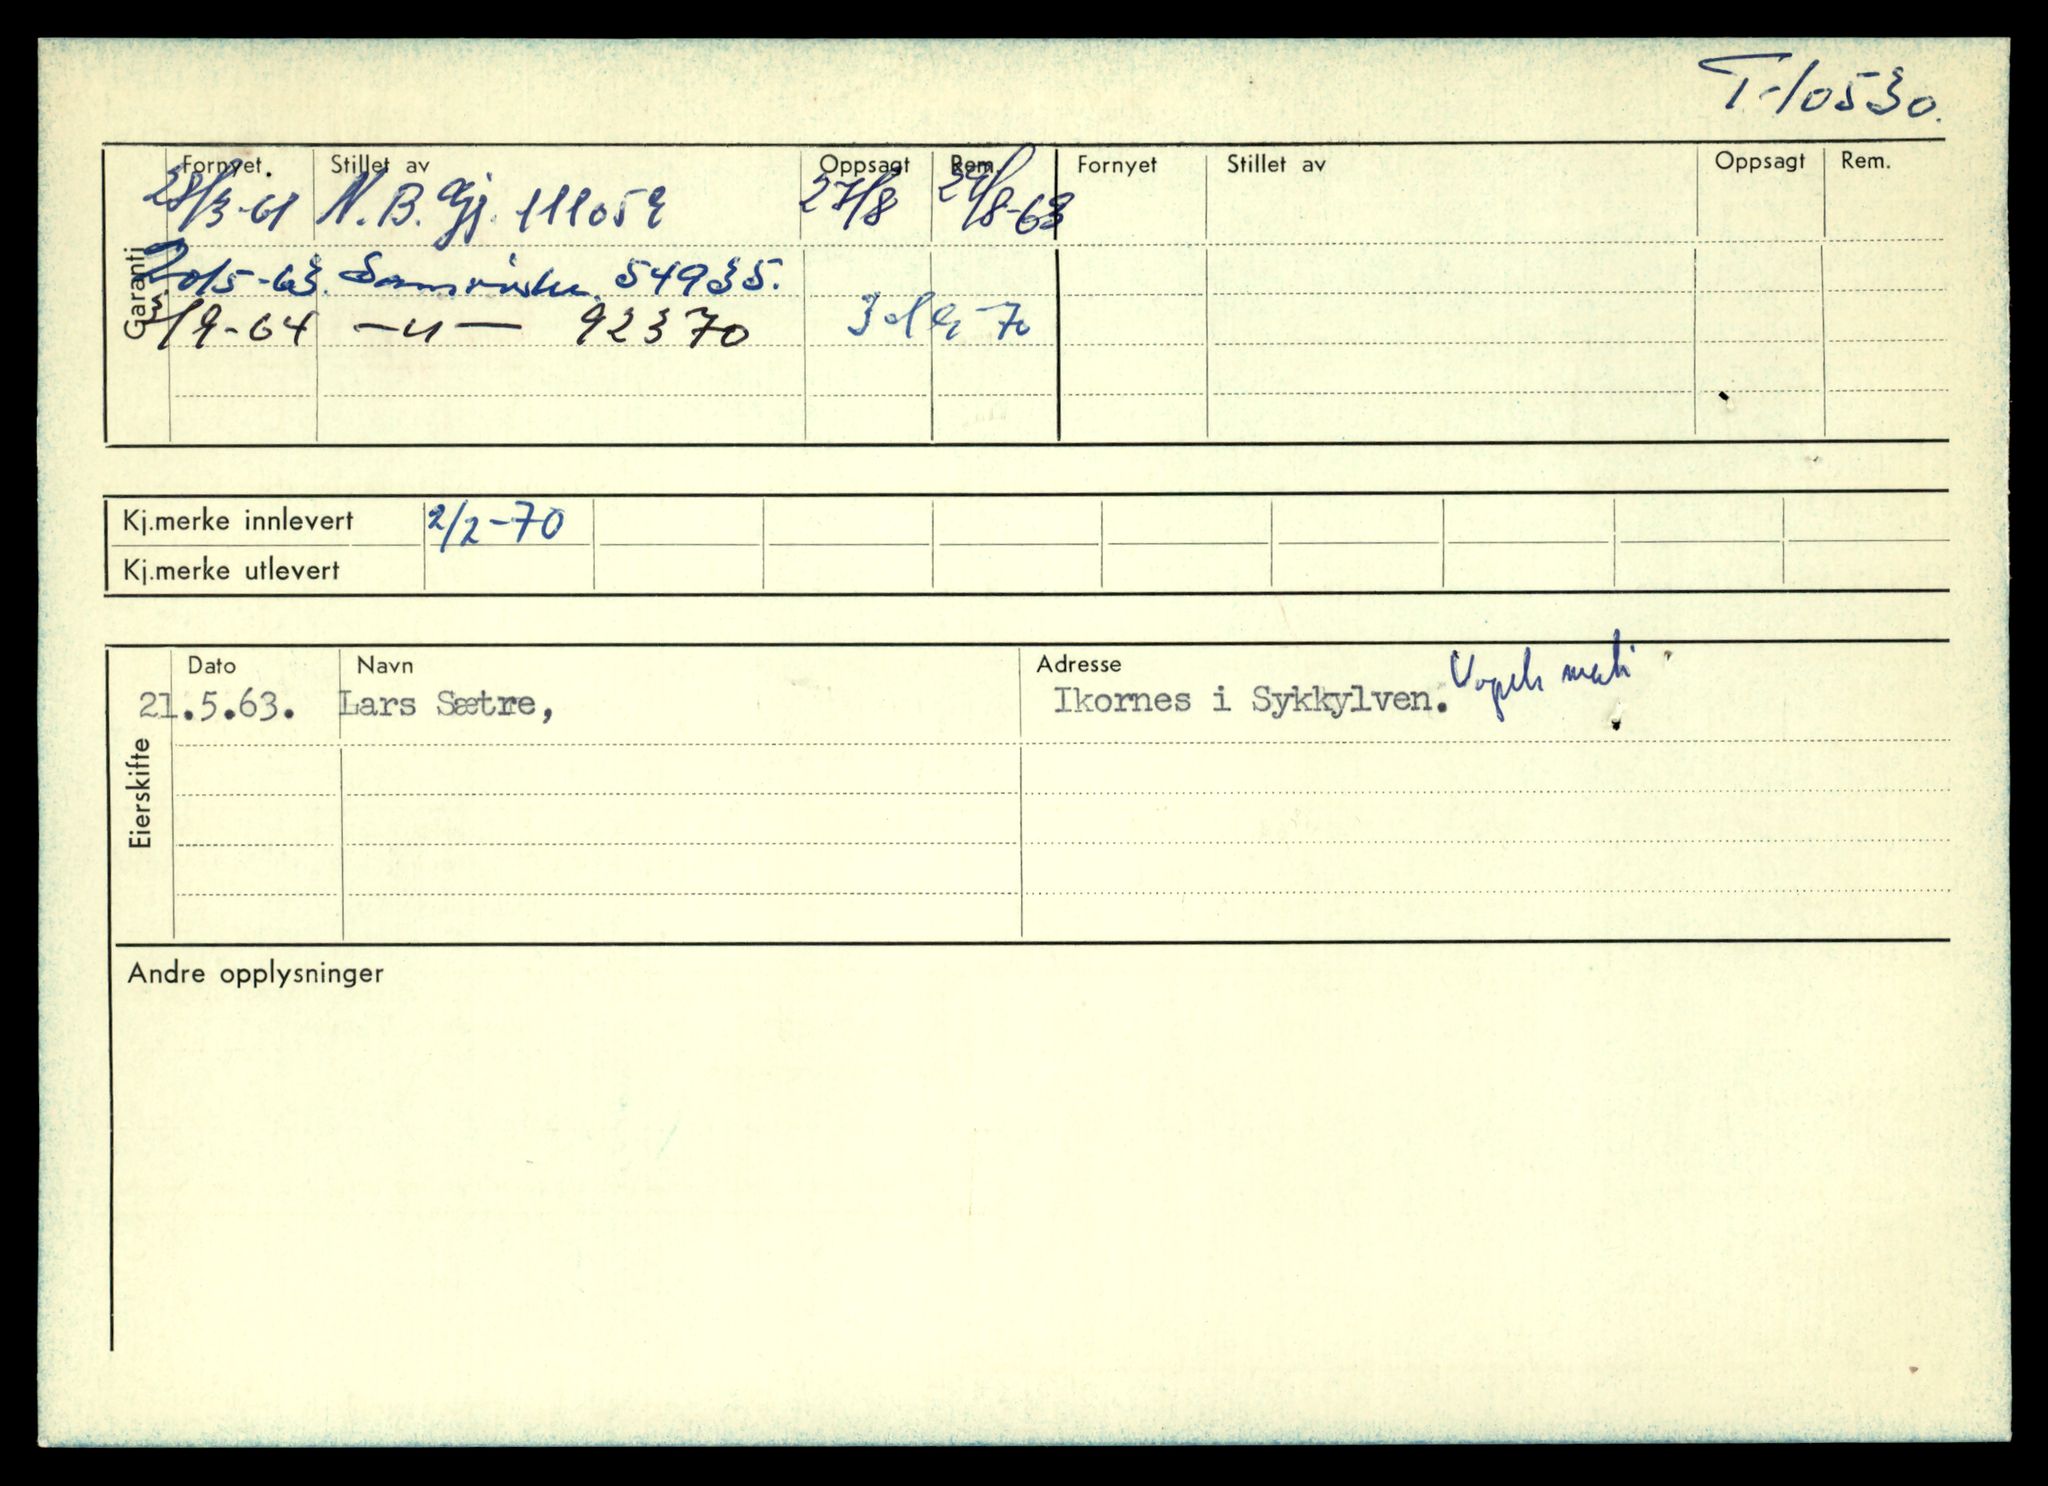 T-10530.
Fornyet. Stillet av Oppsagt Rem. Fornyet Stillet av Oppsagt Rem.
28/3-61 N.B. Gj. 111059 27/8 29/8-63
Garanti
20/5-63. Samvirke 54935.
3/9-64 -"- 92370
Kj.merke innlevert 2/2-70
Kj.merke utlevert
Dato Navn Adresse
21.5.63. Lars Sætre, Ikornes i Sykkylven.
Eierskifte
Andre opplysninger